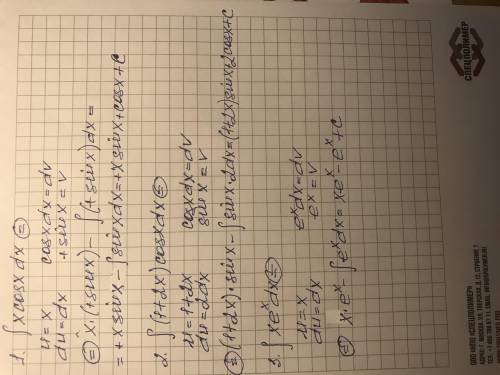 1. ∫ x cosx dx ⊜
u=x cosxdx=dv
du=dx +sinx=v
⊜ x·(+sinx) - ∫(+sinx)dx=
=+xsinx-∫sinxdx=+xsinx+cosx+C
2. ∫(1+2x)cosxdx⊜
u=1+2x cosxdx=dv
du=2dx sinx=v
⊜(1+2x)·sinx-∫sinx·2dx=(1+2x)sinx+2cosx+C
3. ∫xeˣdx⊜
u=x eˣdx=dv
du=dx eˣ=v
⊜ x·eˣ-∫eˣdx=xeˣ-eˣ+C
СПЕЦПОЛИМЕР
ООО НПО «СПЕЦПОЛИМЕР»